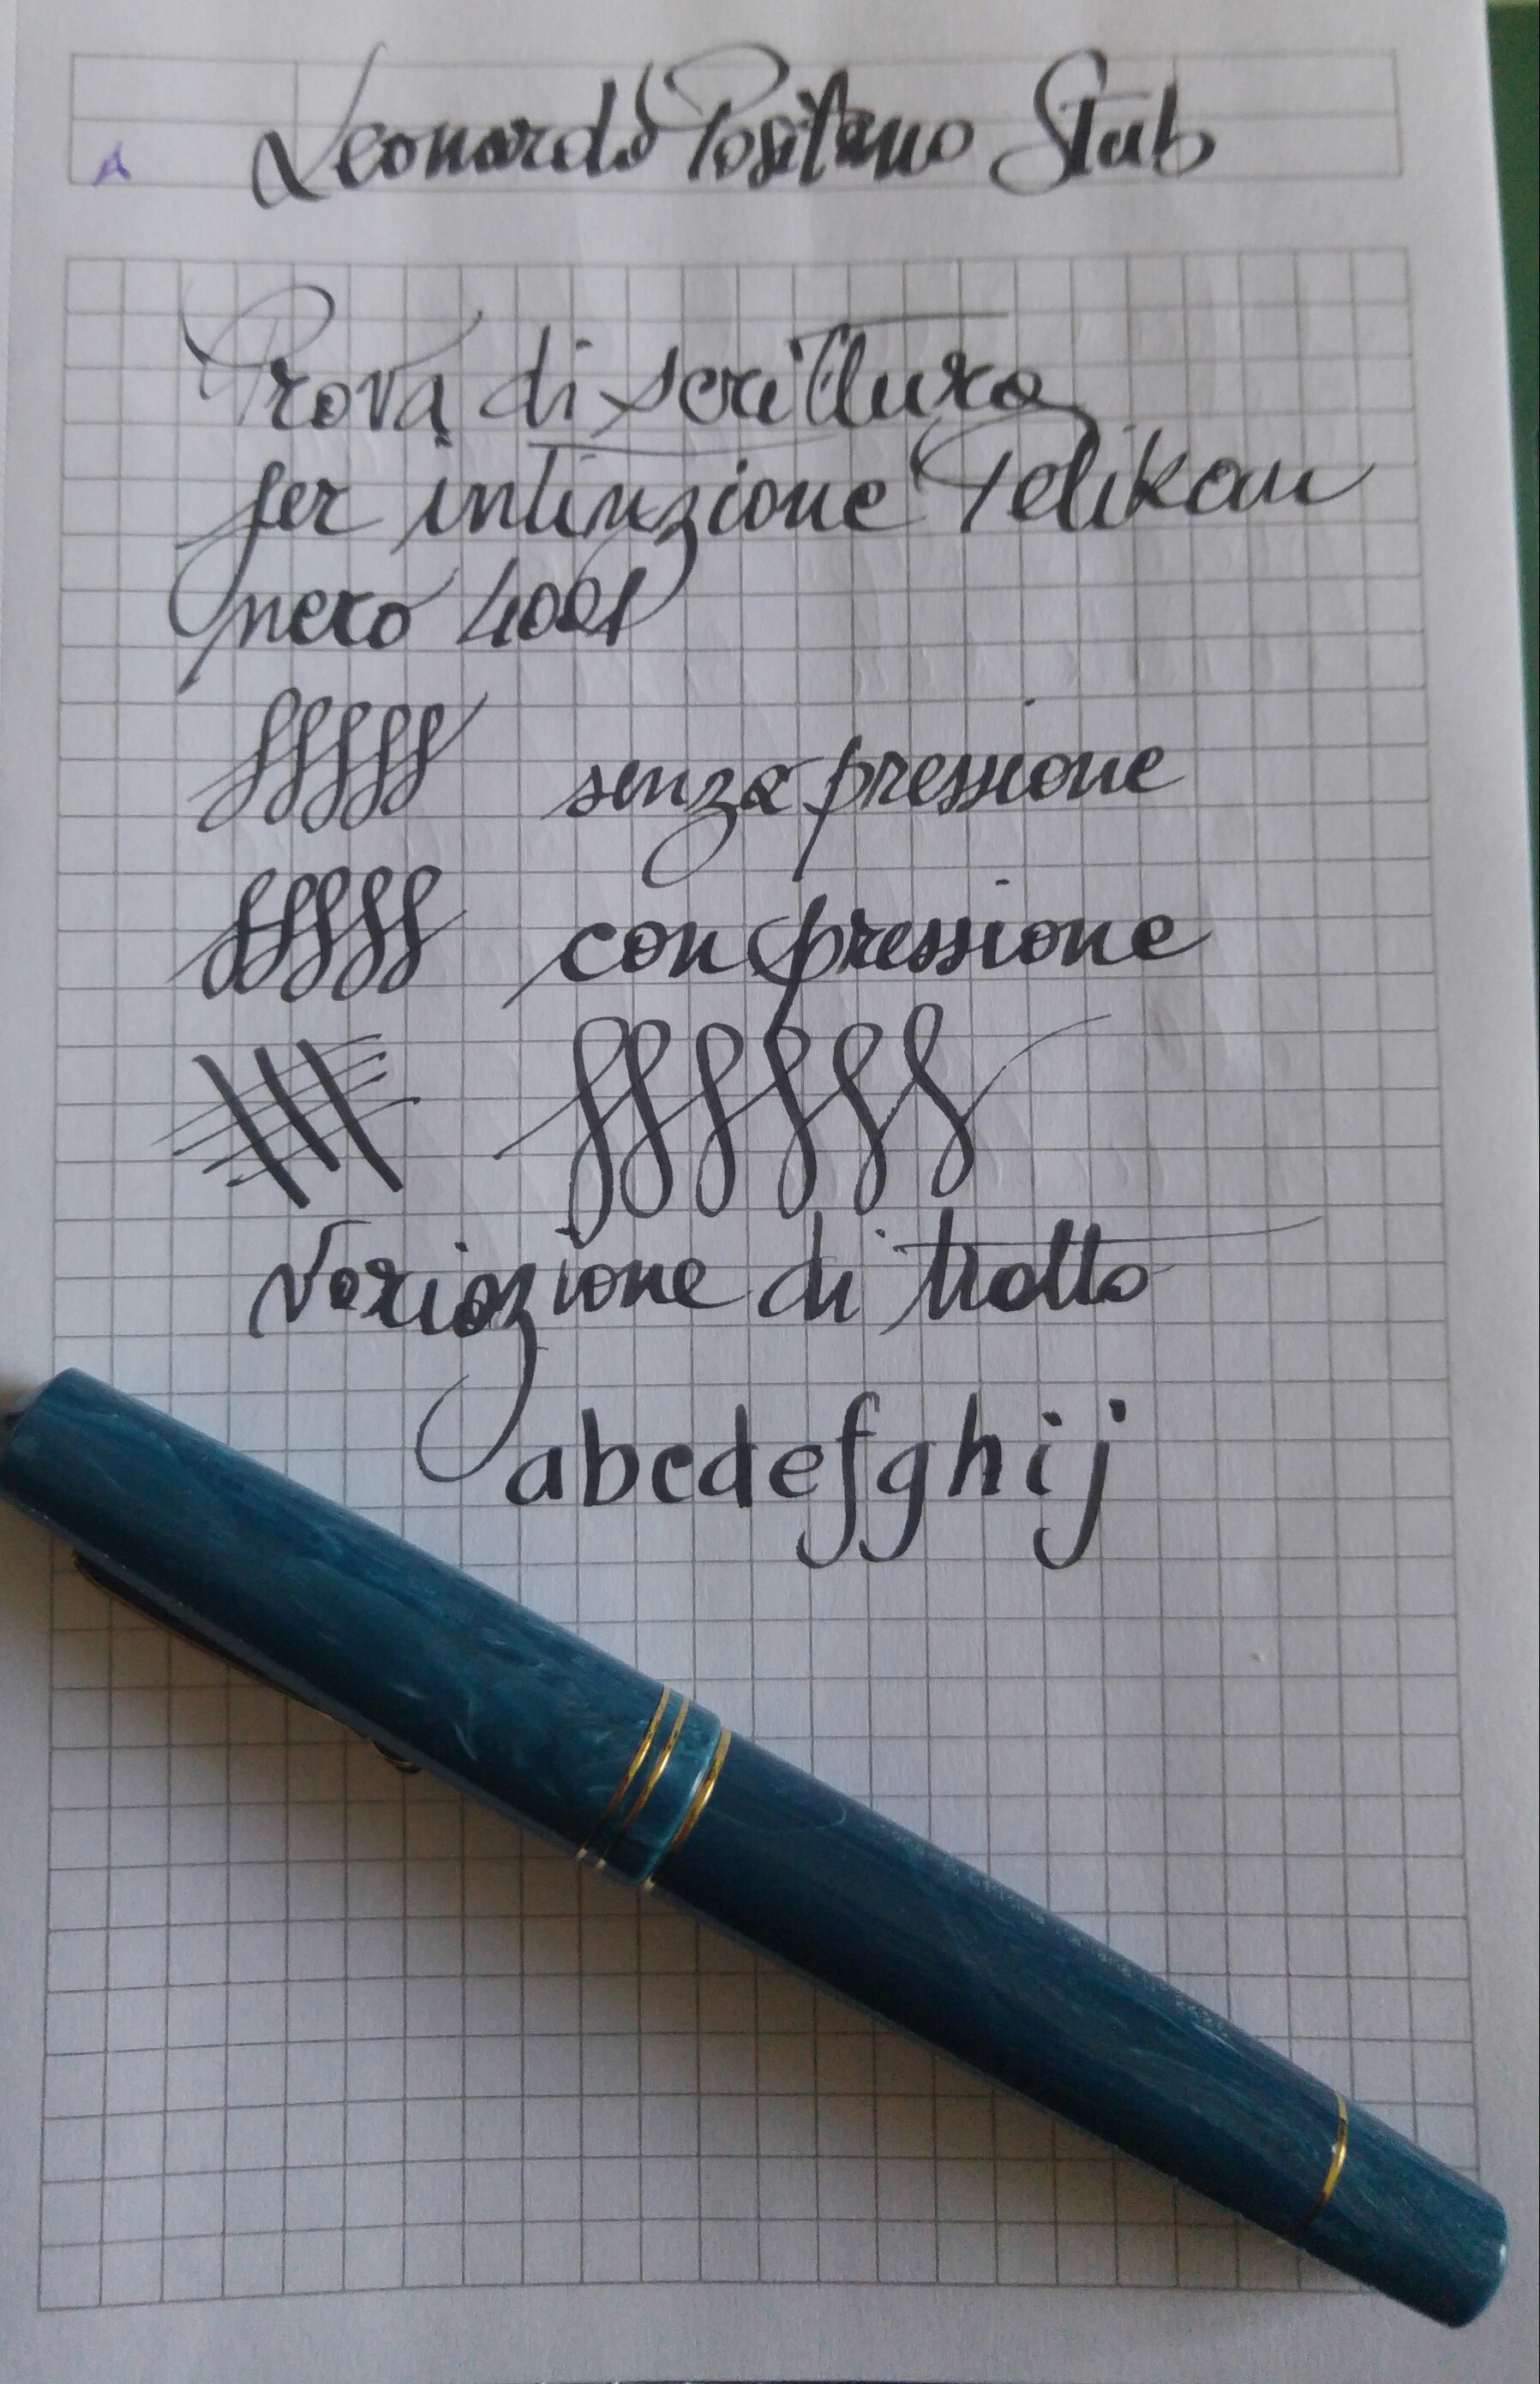 Leonardo Positano Stub
A
Prova di scrittura
per intinzione Pelikan
nero 4001
senza pressione
con pressione
Variazione di tratto
abcdefghij